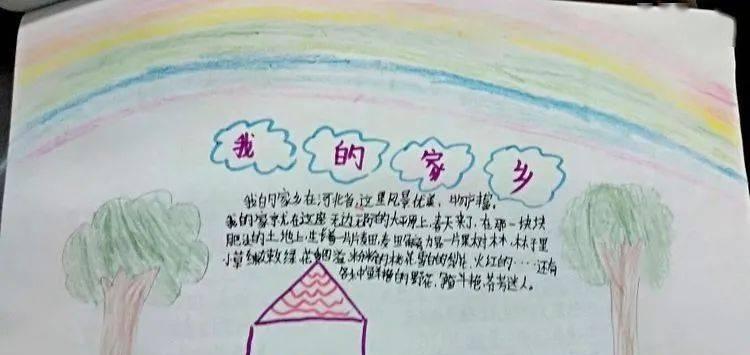 我的家乡
我的家乡在河北省,这里风景优美,物产
我的家就在这座无边无际的大平原上,春天来了,在那一块块
肥沃的土地上,生长着一片片麦田,麦田 为另一片果树林,林子里
小草 绿,花 粉粉的桃花,雪白的梨花,火红的……还有
各式 的野花, 芳香迷人。